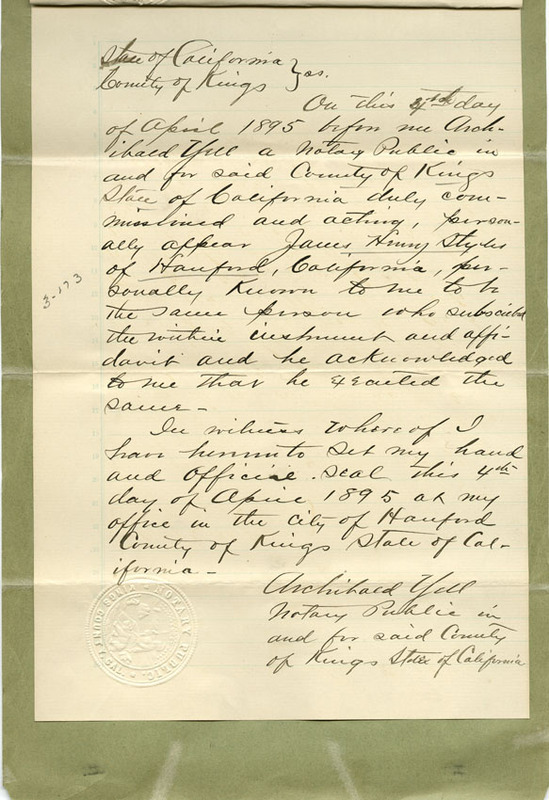 State of California } ss.
County of Kings
On this 4th day
of April 1895 before me Arch-
ibald Yell a Notary Public in
and for said County of Kings
State of California duly com-
missioned and acting, person-
ally appear James Henry Styles
of Hanford, California, per-
sonally Known to me to be
the same person who subscribed
the within instrument and affi-
davit and he acknowledged
to me that he executed the
same -
In witness whereof I
have hereunto set my hand
and official seal this 4th
day of April 1895 at my
office in the City of Hanford
County of Kings State of Cal-
ifornia -
Archibald Yell
Notary Public in
and for said County
of Kings State of California
3-173
NOTARY PUBLIC